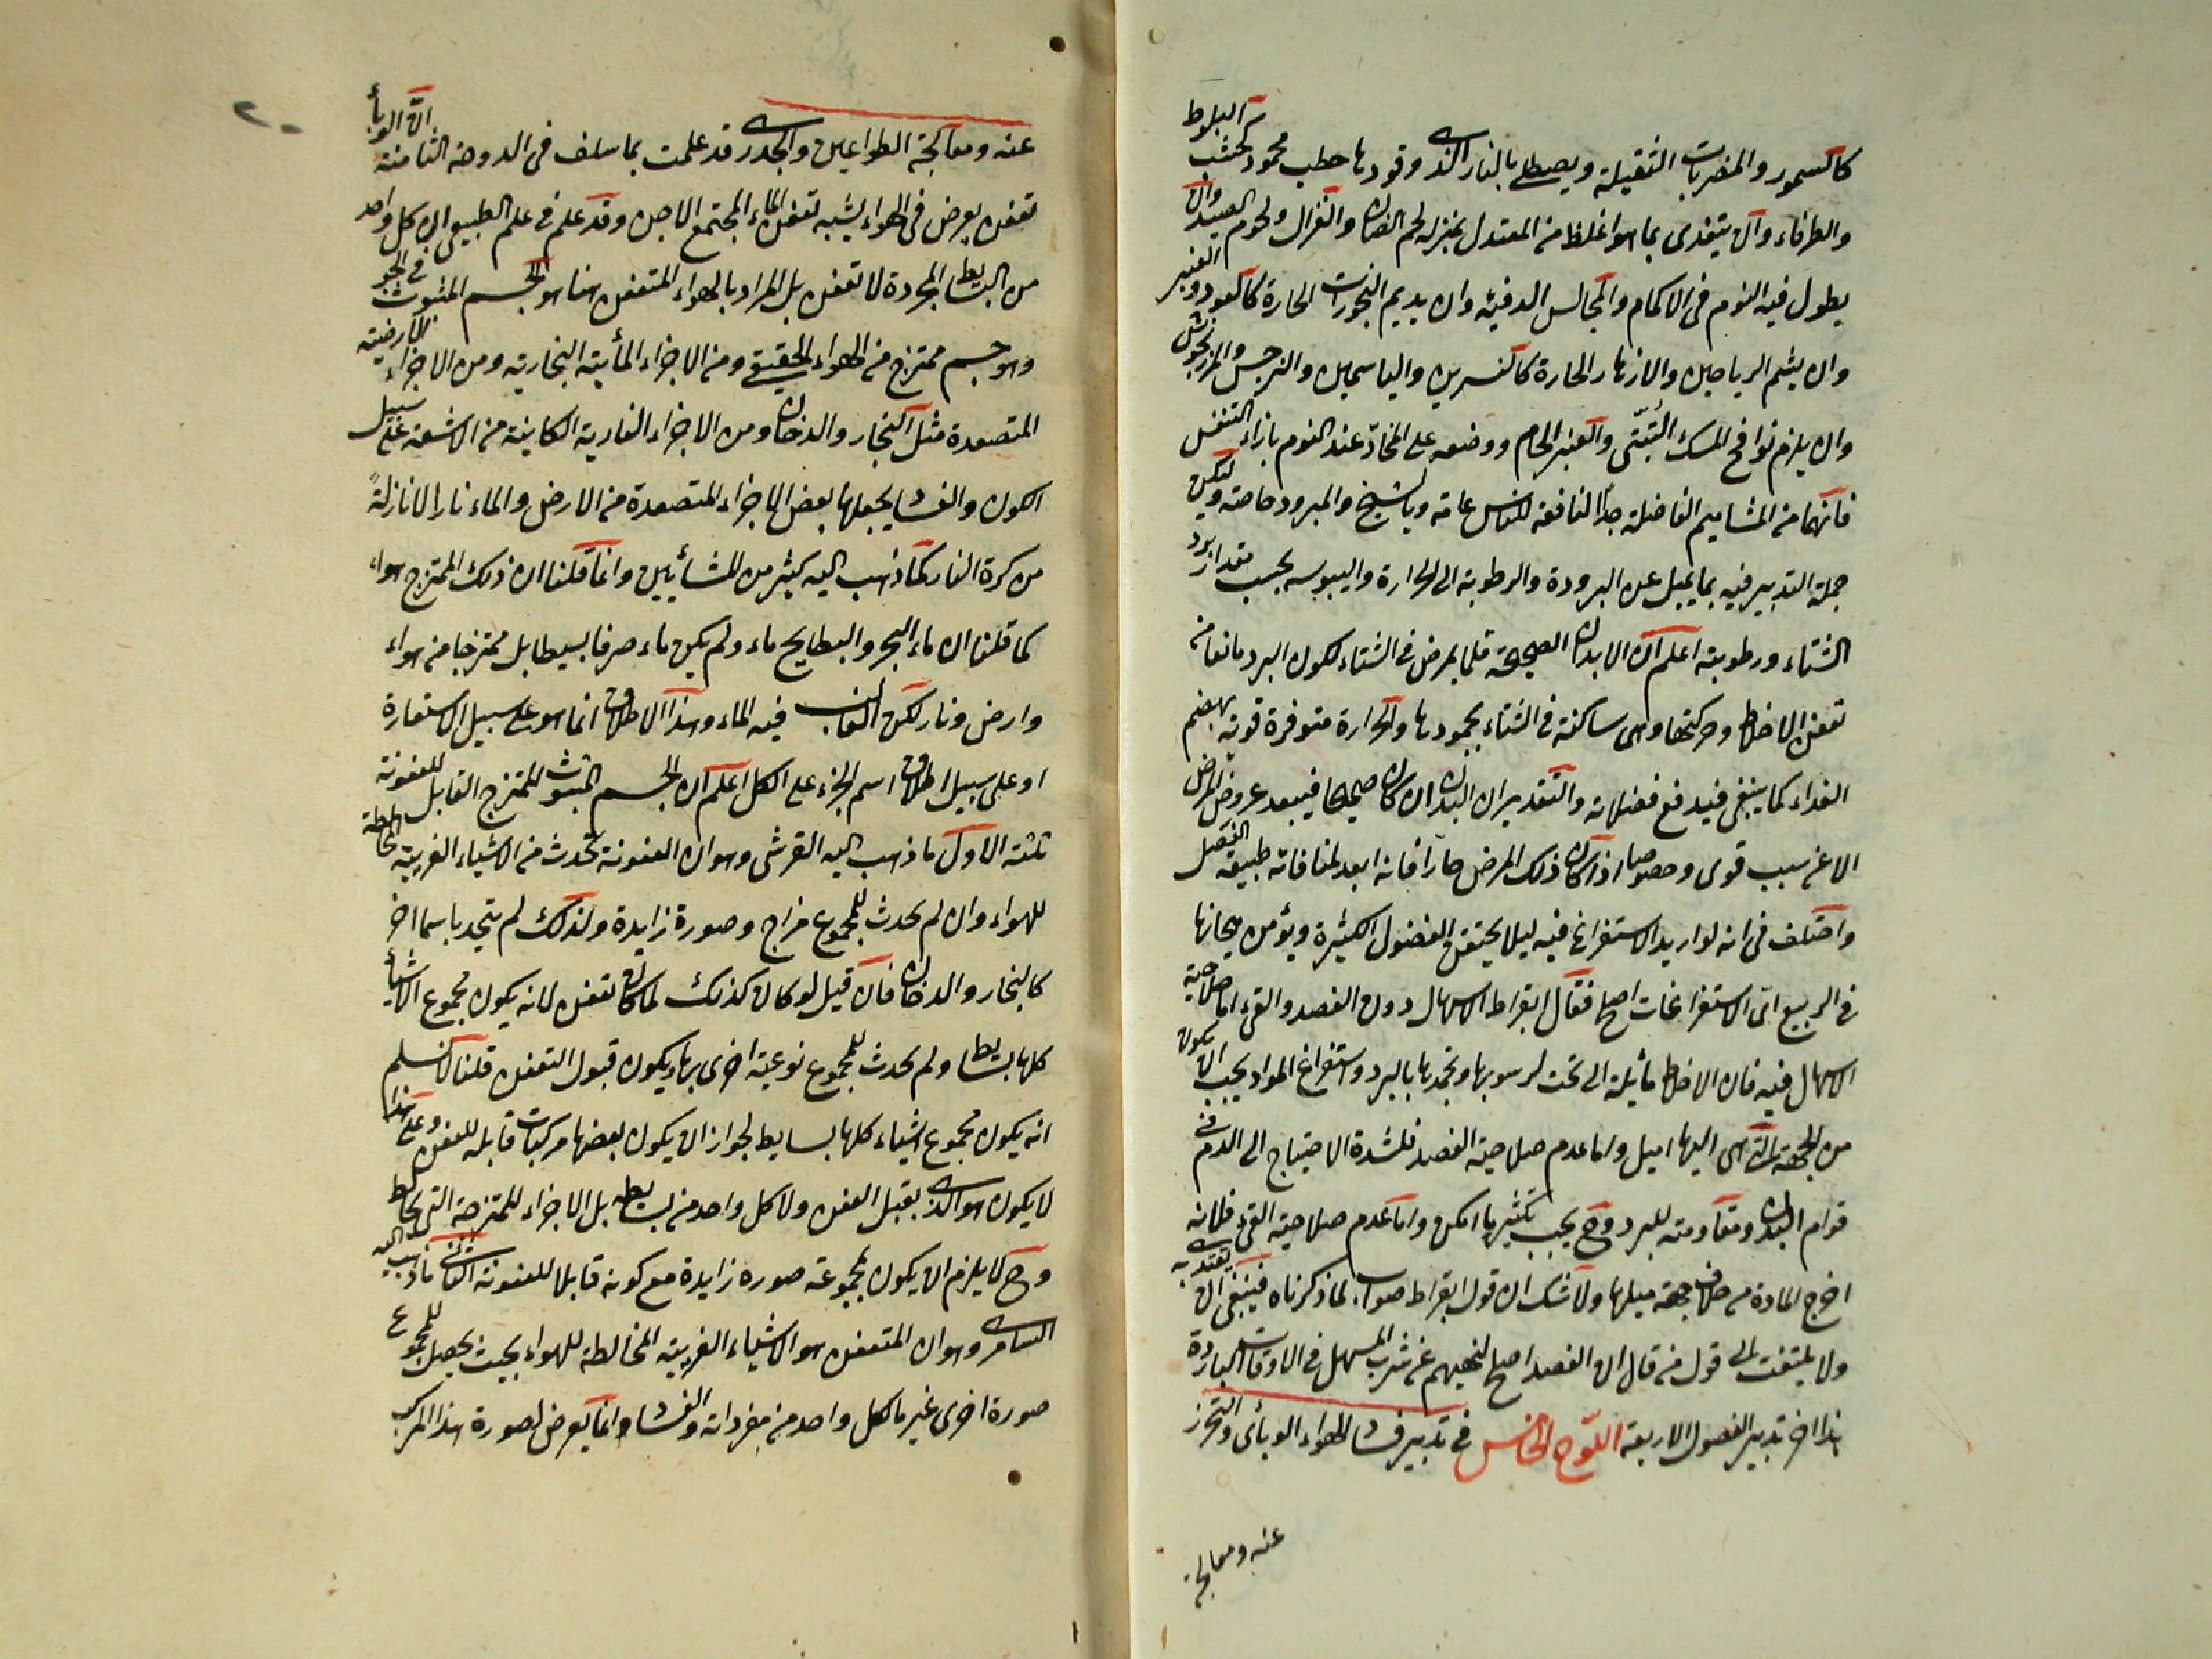 كالسمور والمضربات الثقيلة ويصطلي بالنار الذي وقودها حطب محمود كخشب البلوط
والطرفاء وان يتغذى بما هو اغلظ من المعتدل بمنزلة لحم الضان والغزال ولحوم الصيد وان
يطول فيه النوم في الاكمام والمجالس الدفيئه وان يديم البخورات الحارة كالعود والعنبر
وان يشم الرياحين والازهار الحارة كالنسرين والياسمين والنرجس والمرزنجوش
وان يلزم نوافح المسك التبتى والعنبر الخام ووضعه على المخاد عند النوم بازاء التنفس
فانهما من المشاميم الفاضلة جدا النافعة للناس عامة وبالشيخ والمبرود خاصة وليكن
جملة التدبير فيه بما يميل عن البرودة والرطوبة الى الحرارة واليبوسه بحسب مقدار برد
الشتاء ورطوبته اعلم ان الابدان الصحيحة قلما يمرض في الشتاء لكون البرد مانعا من
تعفن الاخلاط وحركتها وهى ساكنة في الشتاء بجمودها والحرارة متوفرة قوية بهضم
الغداء كما ينبغى فيدفع فضلاته والتقدير ان البدن ان كان صحيحا فيبعد عروض المرض
الا عن سبب قوى وخصوصا اذا كان ذلك المرض حارا فانه ابعد لمنافاته طبيعة الفصل
واختلف فى انه لو اريد الاستفراغ فيه ليلا يحتقن الفضول الكثيرة ويؤمن هيجانها
في الربيع اى الاستفراغات اصلح فقال ابقراط الاسهال دون الفصد والقى اما صلاحية
الاسهال فيه فان الاخلاط مائلة الى تحت لرسوبها وتجمدها بالبرد واستفراغ المواد يجب ان يكون
من الجهة التي هى اليها اميل واما عدم صلاحية الفصد فلشدة الاحتياج الى الدم في
قوام البدن ومقاومته للبرد وح يجب تكثيرها امكن واما عدم صلاحية القى فلانه
اخرج المادة من خلاف جهة ميلها ولا شك ان قول ابقراط صواب لما ذكرناه فينبغى ان يقتدى به
ولا يلتفت الى قول من قال ان الفصد اصلح لنهيهم عن شرب المسهل في الاوقات الباردة
هذا اخر تدبير الفصول الاربعة اللوح الخامس في تدبير فساد الهواء الوبائى والتحرز
عنه ومعالجة
عنه ومعالجة الطواعين والجدرى قد علمت بما سلف فى الدوحة الثامنة ان الوبأ
تعفن يعرض فى الهواء يشبه تعفن الماء المجتمع الاجن وقد علم في علم الطبيعى ان كل واحد
من البسايط المجردة لا تعفن بل المراد بالهواء المتعفن هنا هو الجسم المبثوث في الجو
وهو جسم ممتزج من الهواء الحقيقي ومن الاجزاء المأيية البخارية ومن الاجزاء الارضية
المتصعدة مثل البخار والدخان ومن الاجزاء النارية الكاينة من الاشعة على سبيل
الكون والفساد يجعلها بعض الاجزاء المتصعدة من الارض والماء نارا لا نازلة
من كرة النار كما ذهب اليه كثير من المشأيين وانما قلنا ان ذلك الممتزج هواء
كما قلنا ان ماء البحر والبطايح ماء ولم يكن ماء صرفا بسيطا بل ممتزجا من هواء
وارض ونار لكن الغالب فيه الماء وهذا الاطلاق انما هو على سبيل الاستعارة
او على سبيل اطلاق اسم الجزء على الكل اعلم ان الجسم المبثوث الممتزج القابل للعفونة
ثلثة الاول ما ذهب اليه القرشى وهو ان العفونة تحدث من الاشياء الغريبة المخالطة
للهواء وان لم يحدث للمجموع مزاج وصورة زايدة ولذلك لم يتحد باسم اخر
كالبخار والدخان فان قيل لو كان كذلك لما كان تعفن لانه يكون مجموع الاشيأ
كلها بسايط ولم يحدث للمجموع نوعية اخرى بها يكون قبول التعفن قلنا لا نسلم
انه يكون مجموع اشياء كلها بسايط لجواز ان يكون بعضها مركبات قابلة للعفن وعلى هذا
لا يكون هو الذى يقبل العفن ولا كل واحد من بسايطه بل الاجزاء الممتزجة التى تخالط
وح لا يلزم ان يكون لمجموعه صوره زايدة مع كونه قابلا للعفونة الثانى ما ذهب اليه
السامرى وهو ان المتعفن هو الاشياء الغريبة المخالطة للهواء بحيث يحصل للمجموع
صورة اخرى غير ما لكل واحد من مفرداته والفساد انما يعرض لصورة هذا المركب